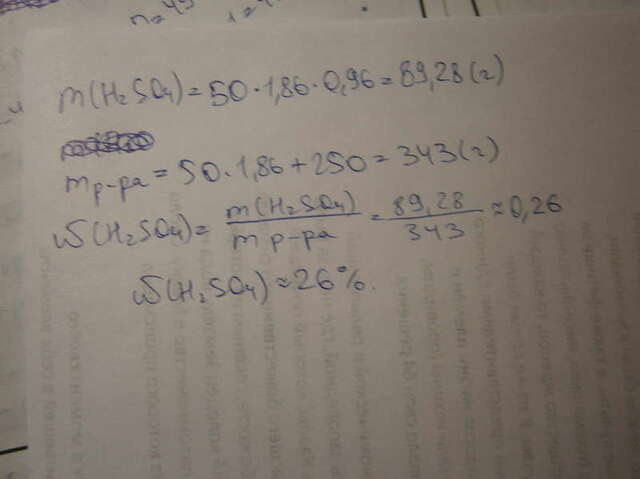 m(H₂SO₄) = 50 · 1,86 · 0,96 = 89,28 (г)
m р-ра = 50 · 1,86 + 250 = 343 (г)
ω(H₂SO₄) = m(H₂SO₄) / m р-ра = 89,28 / 343 ≈ 0,26
ω(H₂SO₄) ≈ 26%.